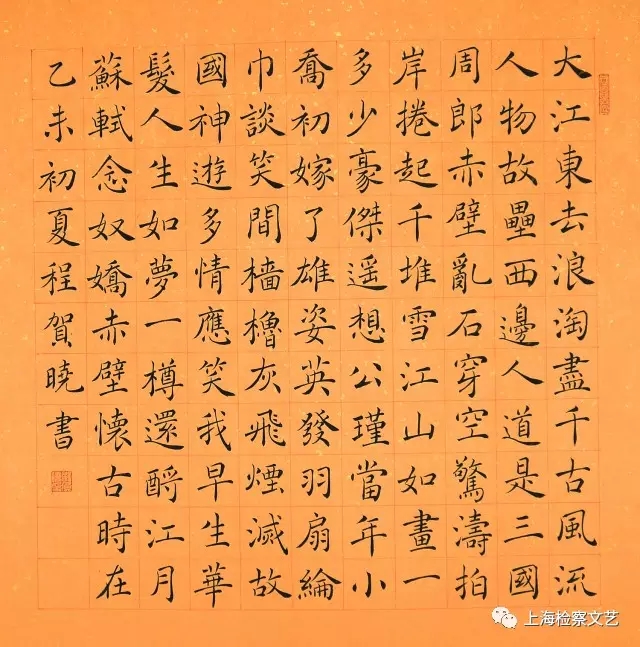 大江東去浪淘盡千古風流
人物故壘西邊人道是三國
周郎赤壁亂石穿空驚濤拍
岸捲起千堆雪江山如畫一
多少豪傑遥想公瑾當年小
喬初嫁了雄姿英發羽扇綸
巾談笑間檣櫓灰飛煙滅故
國神遊多情應笑我早生華
髮人生如夢一樽還酹江月
蘇軾念奴嬌赤壁懷古時在
乙未初夏程賀曉書
上海检察文艺